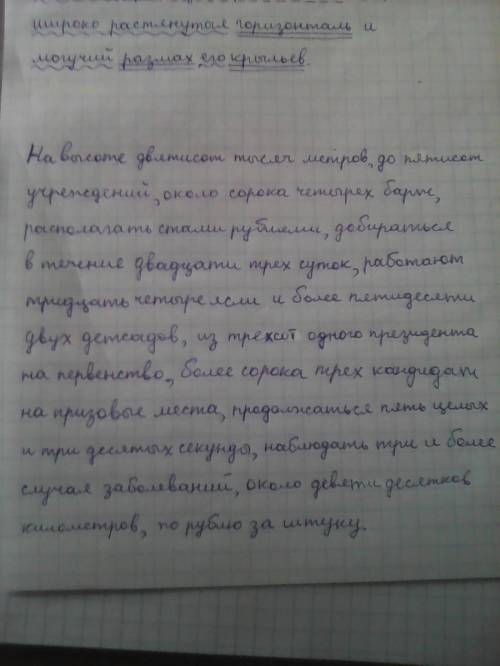 широко растянутая горизонталь и
могучий размах его крыльев.
На высоте двухсот тысяч метров, до пятисот
учреждений, около сорока четырех барж,
располагать стами рублями, добираться
в течение двадцати трех суток, работают
тридцать четыре ясли и более пятидесяти
двух детсадов, из трехсот одного президента
на первенство, более сорока трех кандидат
на призовые места, продолжаться пять целых
и три десятых секунды, наблюдать три и более
случая заболеваний, около девяти десятков
километров, по рублю за штуку.